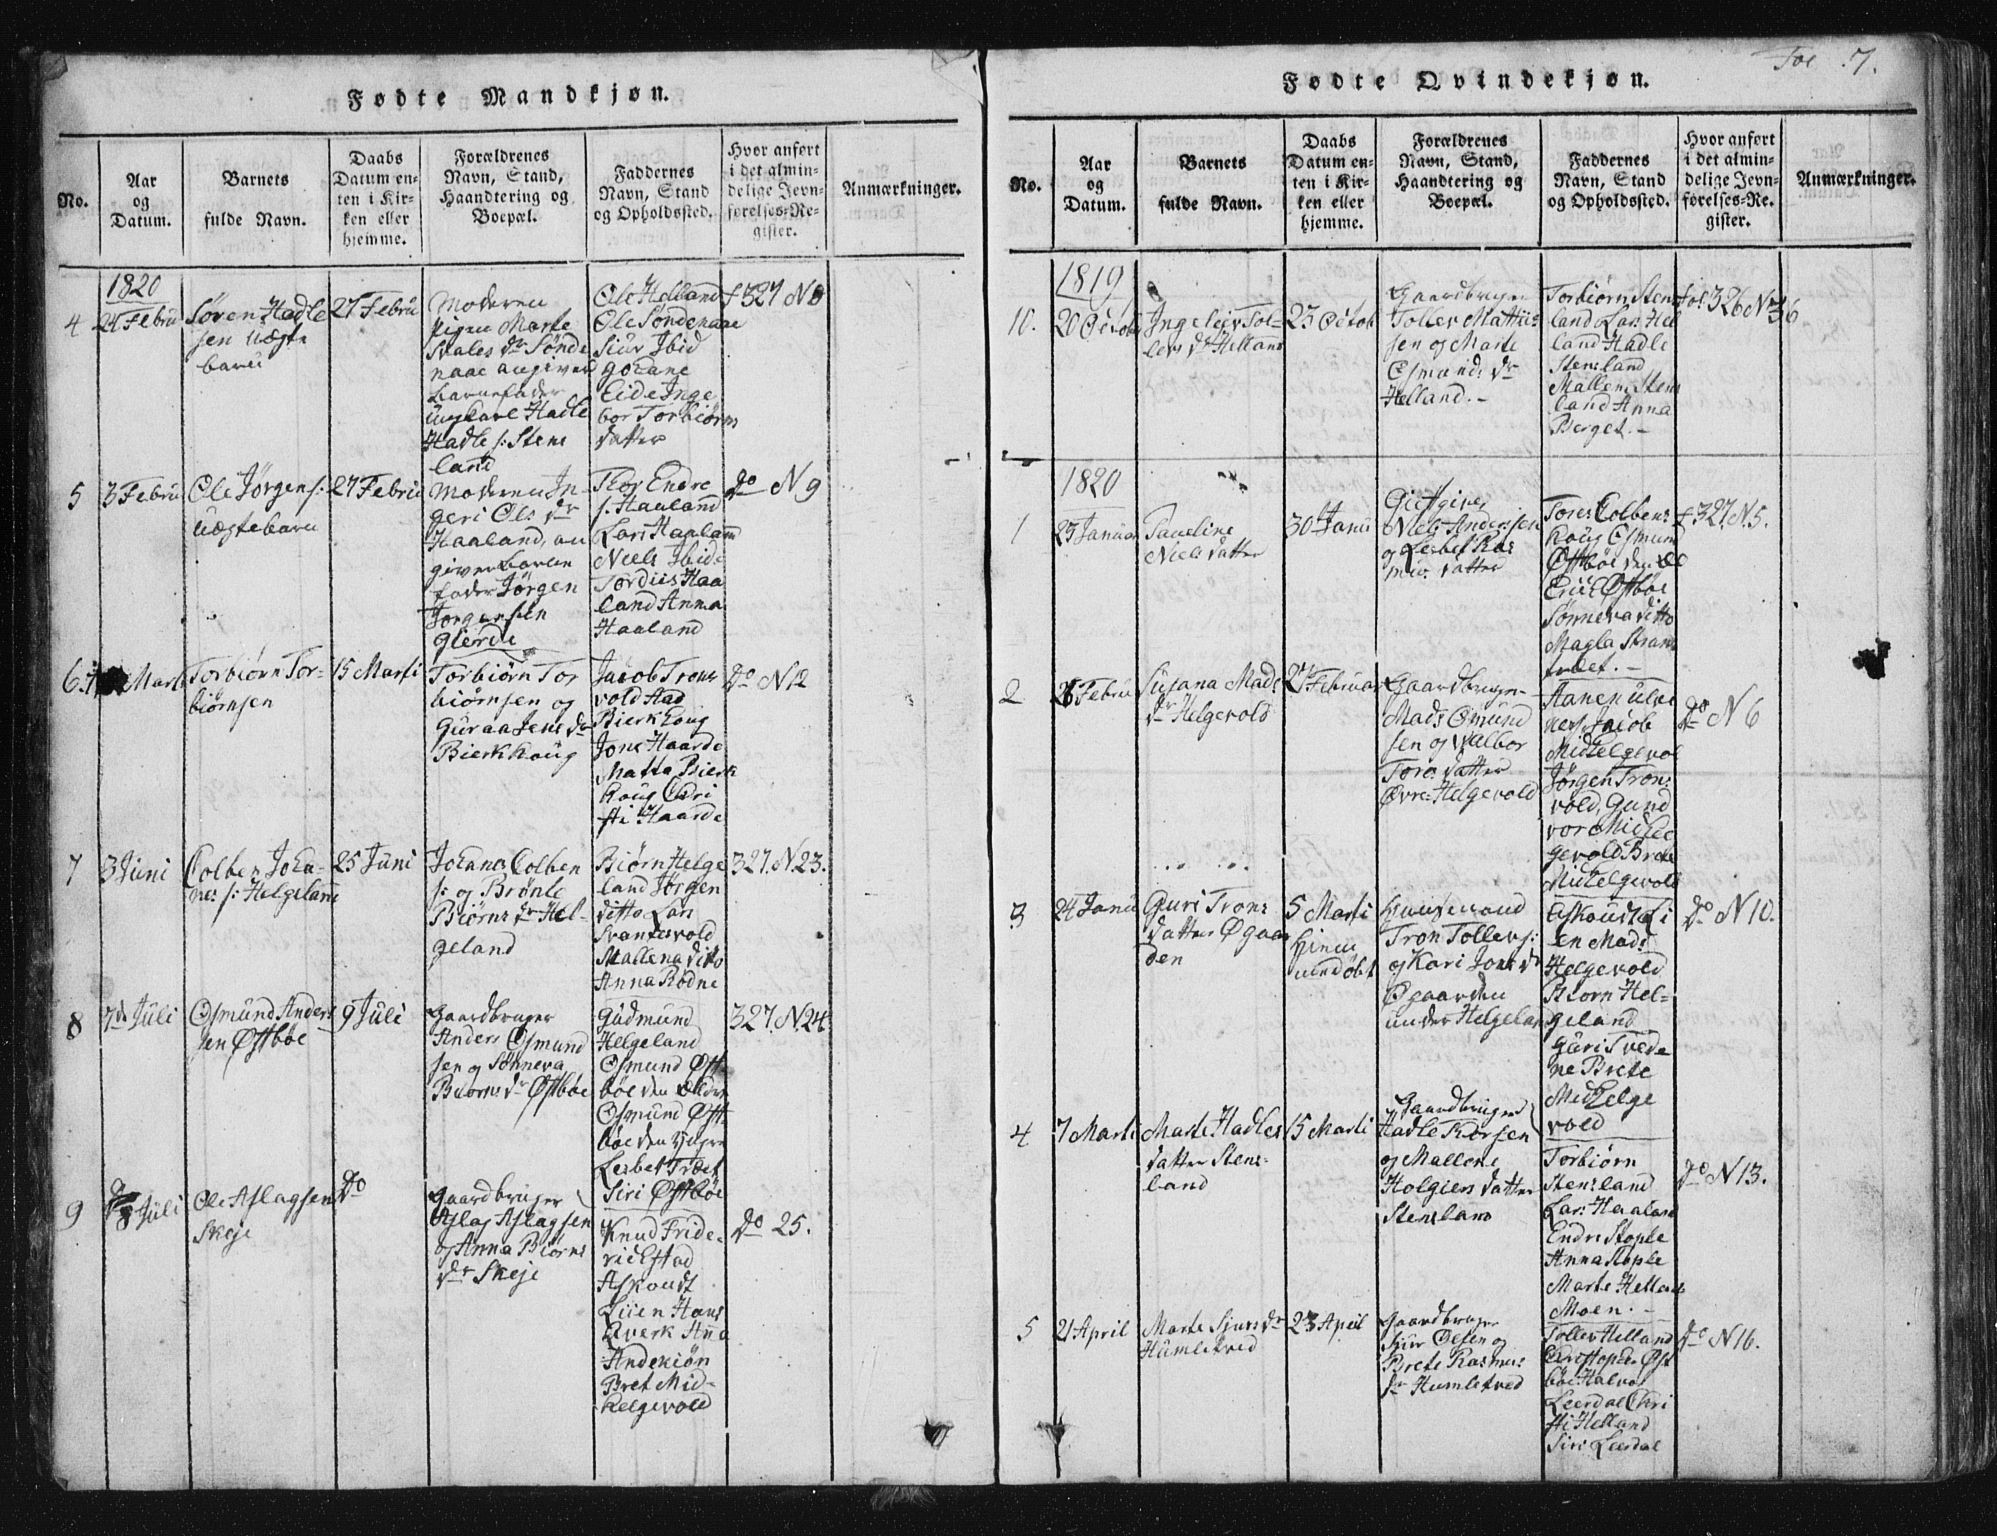 Fødte Mandkjøn.
No.
Aar
og
Datum.
Barnets
fulde Navn.
Daabs
Datum en-
ten i Kir-
ken eller
hjemme.
Forældrenes
Navn, Stand,
Haandtering og
Boepæl.
Faddernes
Navn, Stand
og Opholdssted.
Hvor anført
i det almin-
delige Jevn-
førelses-Re-
gister.
Anmærkninger.
1820
4
24 Febru
Søren Hadle
sen uægte
barn
27 Febru
Moderen
Pigen Marte
Siales dr Sønde
naae angiver
barnefader
ungkarl Hadle
Hadle s: Stens
land
Ole Helland
Ole Søndenaae
Siur Ibid
Eide Inge
bor Torbiørns
datter
f 327 N 8
5
3 Febru
Ole Jørgens:
uægtebarn
27 Febru
Moderen In-
geri Ols dr
Haaland, an
giver barne
fader Jørgen
Jørgensen
Gierde
Thor Endre
s: Haaland
Lars Haaland
Niels Ibid:
Tordiis Haa
land Anna
Haaland
do N 9
6
Marti
Torbiørn Tor-
biørnsen
15 Marti
Torbiørn Tor
biørnsen og
Guraa Jens dr
Bierkhoug
Jacob Trons
vold Aad
Bierkhoug
Jone Haarde
Matta Bierk
houg Chri
sti Haarde
do N 12
7
3 Juni
Colben Joha-
nes s: Helgeland
25 Juni
Johanes Colben
s: og Brønle
Biørns dr Hel-
geland
Biørn Helge
land Jørgen
ditto Lars
Svantesvold
Mallena ditto
Anna Rødne
327. N. 23.
8
7de Juli
Osmund Anders
sen Østbøe
9 Juli
Gaardbruger
Anders Osmund
sen og Sønneva
Biørns dr Østbøe
Gudmund
Helgeland
Osmund Øst
bøe den ældre
Osmund Øst
bøe den yngre
Lisbet Træet
Siri Østbøe
327. N. 24
9
8 Juli
Ole Aslagsen
Skeje
do
Gaardbruger
Aslag Aslagsen
og Anna Biørns
dr Skeje
Knud Fride-
richstad
Askoudt
Liien Hans
Qverk Anna
Andekiøn
Bret Mid-
helgevold
do 25.
Fødte Qvindekjøn.
Fol 7.
No.
Aar
og
Datum.
Barnets
fulde Navn.
Daabs
Datum en-
ten i Kir-
ken eller
hjemme.
Forældrenes
Navn, Stand,
Haandtering og
Boepæl.
Faddernes
Navn, Stand
og Opholdssted.
Hvor anført
i det almin-
delige Jevn-
førelses-Re-
gister.
Anmærkninger.
1819
10.
20 Octob
Ingeleiv Tol-
levs dr Helland
23 Octob
Gaardbruger
Tollev Mathi-
sen og Marte
Osmunds dr
Helland.-
Torbiørn Stens
land Lars Hel
land Hadle
Stensland
Mallene Stens
land Anna
Berget.-
fol: 326 No 36
1820
1
23 Januar
Pauline
Niels datter
30 Janu
Giestgiver
Niels Anderssen
og Lesbet Ras
mus datter
Tores Colbens
houg Osmund
Østbøe den æl
Eriic Østbøe
Sønneva ditto
Magla Strand
f 327. N. 5.
2
Febru
Susana Mads
dr Helgevold
27 Februar
Gaardbruger
Mads Osmund
sen og Valbor
Tores datter
Øvre Helgevold
Jacob
Midhelgevol
Jørgen Trons
vold, Gund
vor Midhel
gevold Brete
Midhelgevold
do N 6
3
24 Janu
Guri Trons
datter Øgaar
den
5 Marti
hiemmedøbt
Huusmand
Tron Tollevs:
og Kari Jons dr
Øgaarden
under Helgeland
Askoudt Li
en Mads
Helgevold
Biørn Hel-
geland
Guri Tvede
ne Brete
Midhelge
vold
do N 10.
4
7 Marti
Marte Hadles
datter Stens-
land
15 Marti
Gaardbruger
Hadle Thorsen
og Mallene
Holgiers datter
Stensland
Torbiørn
Stensland
Lars Haaland
Endre Stople
Anna Stople
Marte Helland
Moen.-
do N 13.
5
21 April
Marte Sjurs dr
Humletved
23 April
Gaardbruger
Sjur Olsen og
Brete Rasmus
dr Humletved
Tollev Helland
Christopher Øst
bøe Halvor
Leerdal Chri
sti Helland
Siri Leerdal
do N 16.